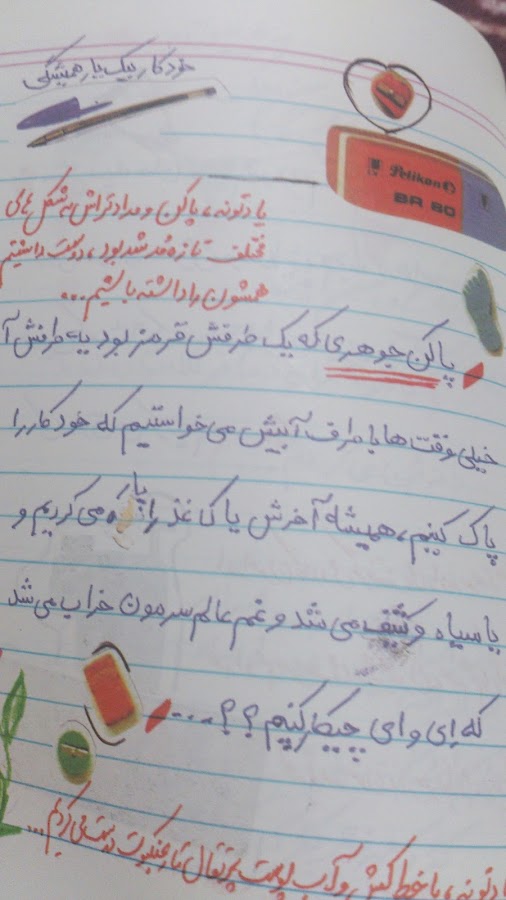 خودکار بیک یار همیشگی
Pelikan
BR 80
یادتونه، پاکن و مدادتراش به شکل های
مختلف تازه مُد شده بود، دوست داشتیم
همشون را داشته باشیم...
پاکن جوهری که یک طرفش قرمز بود یه طرفش آ
خیلی وقت ها با طرف آبیش می خواستیم که خودکار را
پاک کنیم، همیشه آخرش یا کاغذ را پاره می کردیم و
یا سیاه و کثیف می شد و غم عالم سرمون خراب می شد
که اِی وای چیکار کنیم؟؟....
ادتونه، با خط کش و آب پوست پرتقال تار عنکبوت درست می کردیم...